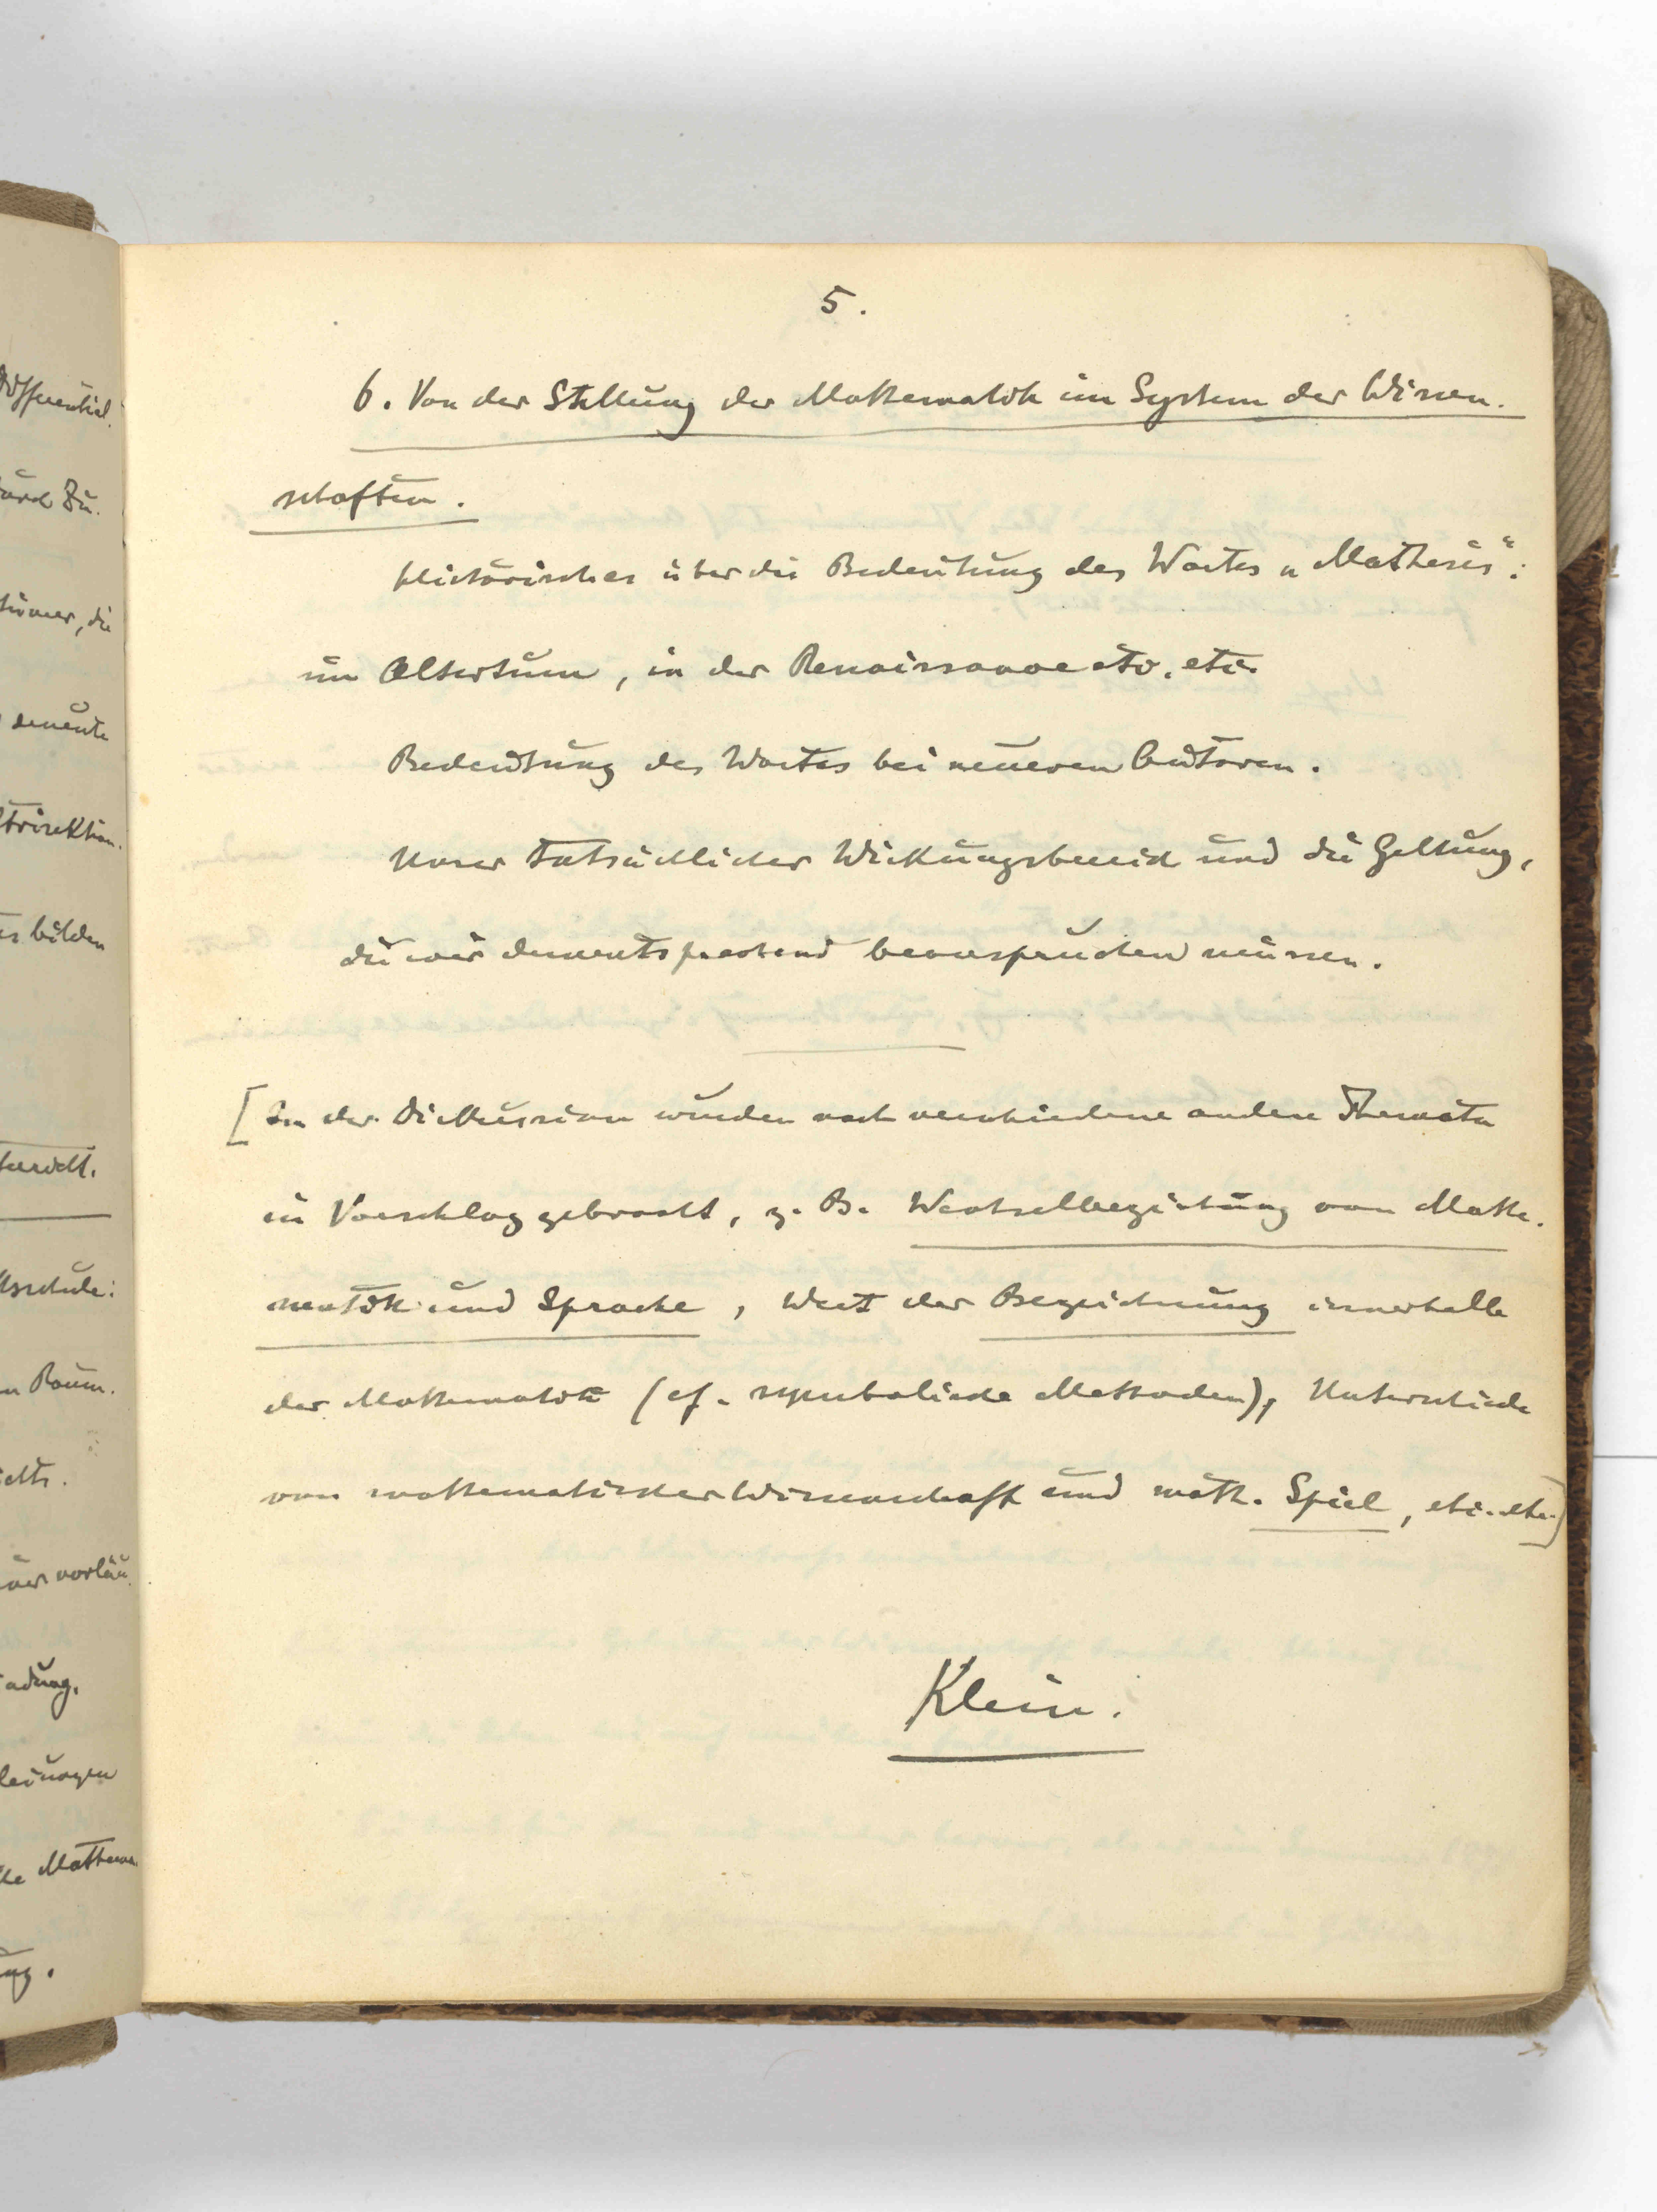 Differential.
durch Zu.
, die
demente
striktion.
es bilden
schule:
n Raum.
vorläu.
adung.
leitungen
he Mathema.
ng.
5.
6. Von der Stellung der Mathematik im System der Wissen.
schaften.
Historisches über die Bedeutung des Wortes „Mathesis“:
im Altertum, in der Renaissance etc. etc.
Bedeutung des Wortes bei neueren Autoren.
Unser tatsächlicher Wirkungsbereich und die Geltung,
die wir dementsprechend beanspruchen müssen.
[In der Diskussion wurden noch verschiedene andere Themata
in Vorschlag gebracht, z. B. Wechselbeziehung von Mathe.
matik und Sprache, Wert der Bezeichnung innerhalb
der Mathematik (cf. symbolische Methoden), Unterschiede
von mathematischer Wissenschaft und math. Spiel, etc. etc.]
Klein.